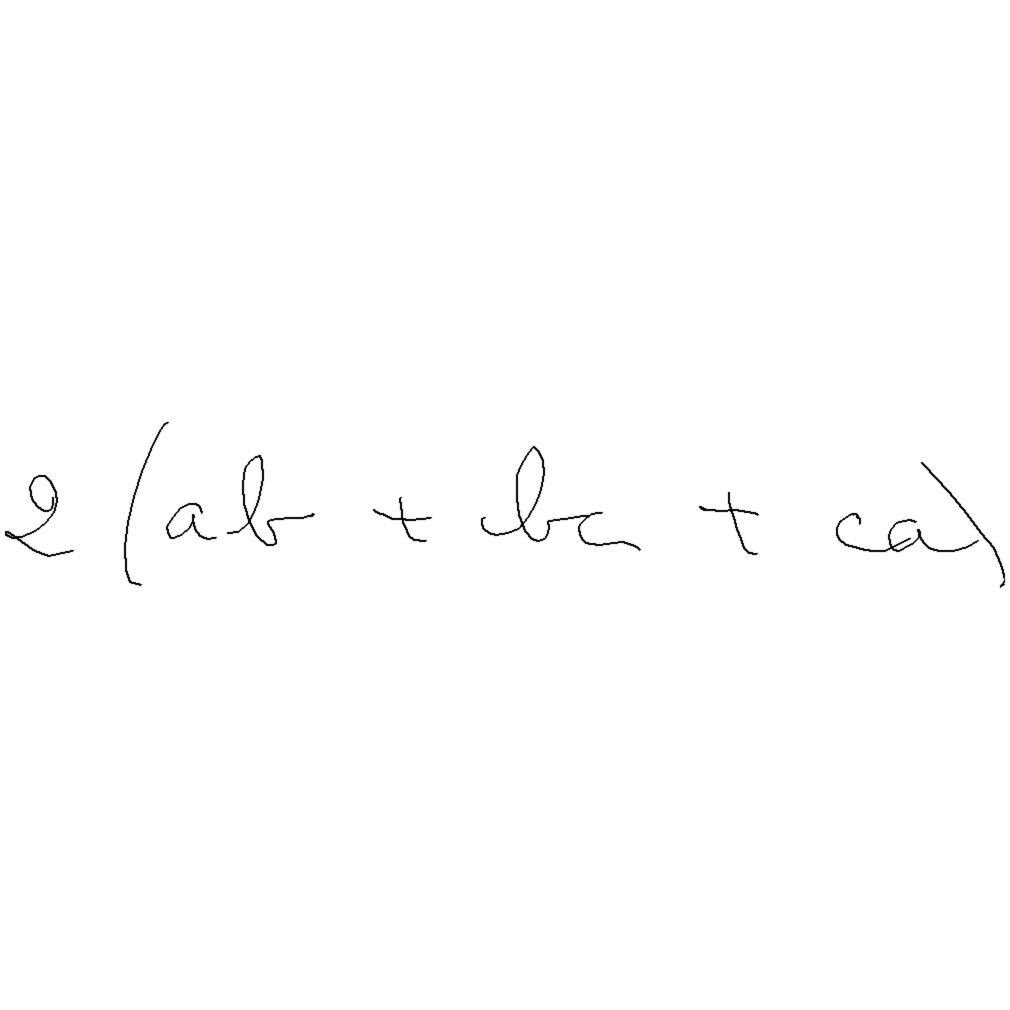 2(ab + bc + ca)